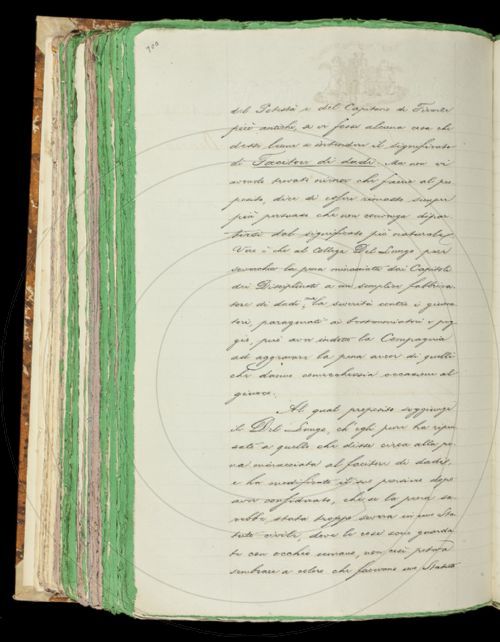 700
del Potestà e del Capitano di Firenze
più antichi, se vi fosse alcuna cosa che
desse lume a intendere il significato
di Facitori di dadi. Ma non vi
avendo trovato niente che faccia al pro
posito, dice di essere rimasto sempre
più persuaso che non convenga dipar
tirsi dal significato più naturale.
Vero è che al Collega Del Lungo pare
soverchia la pena minacciata dai Capitoli
dei Disciplinati a un semplice fabbrica
tore di dadi; ma la severità contro i giuoca
tori, paragonati ai bestemmiatori e peg
gio, può aver indotto la Compagnia
ad aggravare la pena ancor di quelli
che danno comecchessia occasione al
giuoco.
Al qual proposito soggiunge
il Del Lungo, ch'egli pure ha ripen
sato a quello che disse circa alla pe
na minacciata al facitore di dadi,
e ha modificato il suo pensiero dopo
aver considerato, che se la pena sa
rebbe stata troppo severa in uno Sta
tuto civile, dove le cose sono guarda
te con occhio umano, non così poteva
sembrare a coloro che facevano uno Statuto